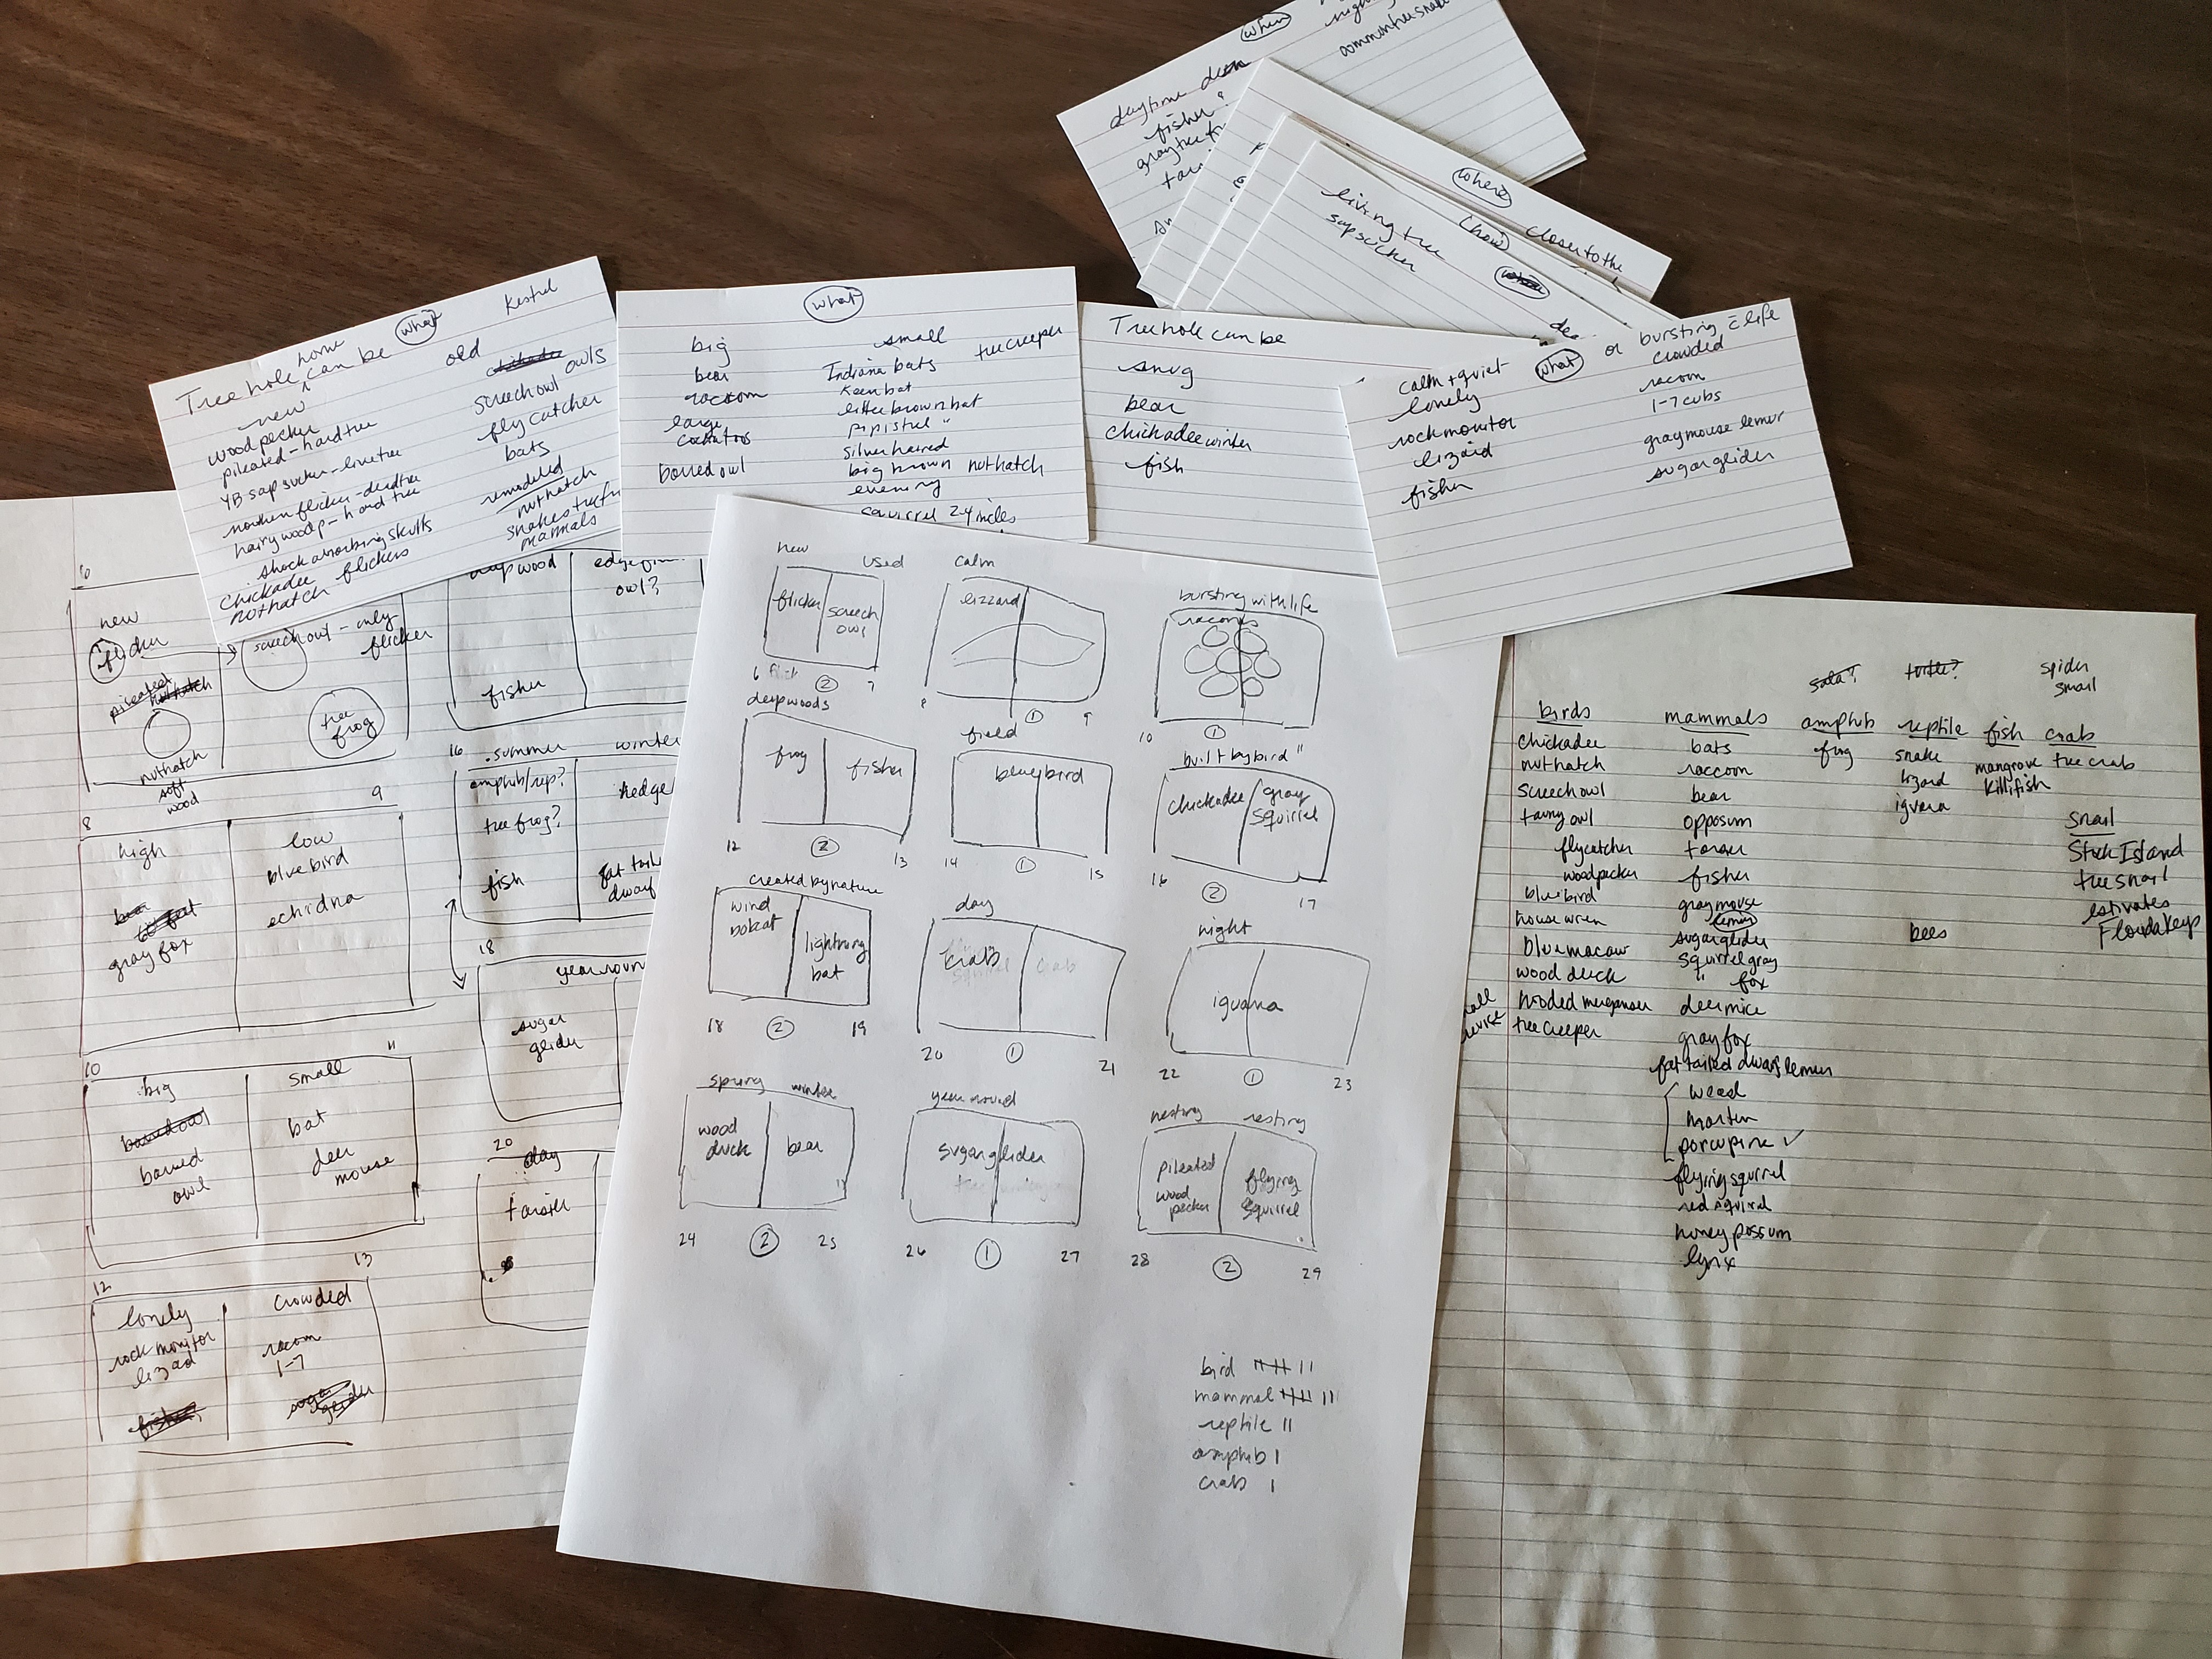 when
daytime
fisher
where
closer to the
how
living tree
sapsucker
Tree hole home can be
what
Kestrel
new
old
woodpecker
pileated - hard tree
YB sapsucker - live tree
northern flicker - dead tree
hairy woodp - hard tree
shock absorbing skulls
chickadee flickers
nuthatch
owls
screech owl
flycatcher
bats
remodeled
nuthatch
mammals
what
big
bear
racoon
large
barred owl
small
treecreeper
Indiana bats
Keen bat
little brown bat
pipistrel "
silver haired
big brown
nuthatch
evening
squirrel 2.4 inches
Tree hole can be
snug
bear
chickadee winter
fish
what
calm + quiet
lonely
rock monitor
lizard
fisher
or bursting c̄ life
crowded
racoon
1-7 cubs
gray mouse lemur
sugar glider
6
new
flicker
pileated
nuthatch
soft
wood
flicker
tree
frog
deep wood
owl?
fisher
8
9
high
gray fox
low
bluebird
echidna
10
11
big
barred
owl
small
bat
deer
mouse
12
13
lonely
rock monitor
lizad
crowded
racom
1-7
16
summer
winter
amphib/rep?
tree frog?
fish
hedge
fat tail
dwarf
18
year roun
sugar
glider
20
day
new
used
flicker
screech
owl
6
2
7
calm
lizzard
8
1
9
bursting with life
racons
10
1
deepwoods
frog
fisher
12
2
13
field
bluebird
14
1
15
built by bird "
chickadee
gray
squirrel
16
2
17
created by nature
wind
bobcat
lightning
bat
18
2
19
day
crab
20
1
21
night
iguana
22
1
23
spring
winter
wood
duck
bear
24
2
25
year round
sugar glider
26
1
27
nesting
resting
pileated
wood
pecker
flying
squirrel
28
2
29
bird
mammal
reptile II
amphib I
crab I
turtle?
spider
snail
birds
chickadee
nuthatch
screech owl
tawny owl
flycatcher
woodpecker
bluebird
house wren
blue macaw
wood duck
hooded merganser
tree creeper
mammals
bats
raccoon
bear
opposum
fisher
gray mouse
lemur
sugar glider
squirrel gray
" fox
deer mice
gray fox
fat tailed dwarf lemur
marten
porcupine ✓
flying squirrel
red squirrel
honey possum
lynx
amphib
frog
reptile
snake
lizard
iguana
bees
fish
mangrove
killifish
crab
tree crab
snail
Stock Island
tree snail
Florida Keys